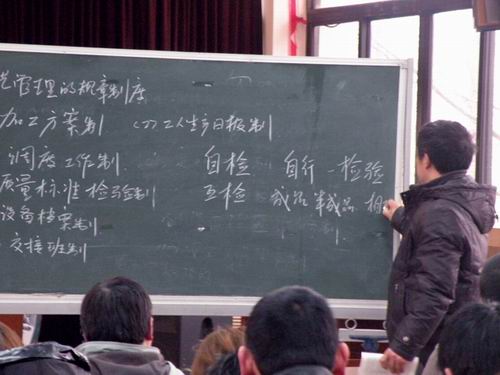 艺管理的规章制度
加工方案制 (7)工人生产日报制
调度工作制
自检 自行一检验
质量标准检验制
互检 成品 半成品 相
设备档案制
交接班制